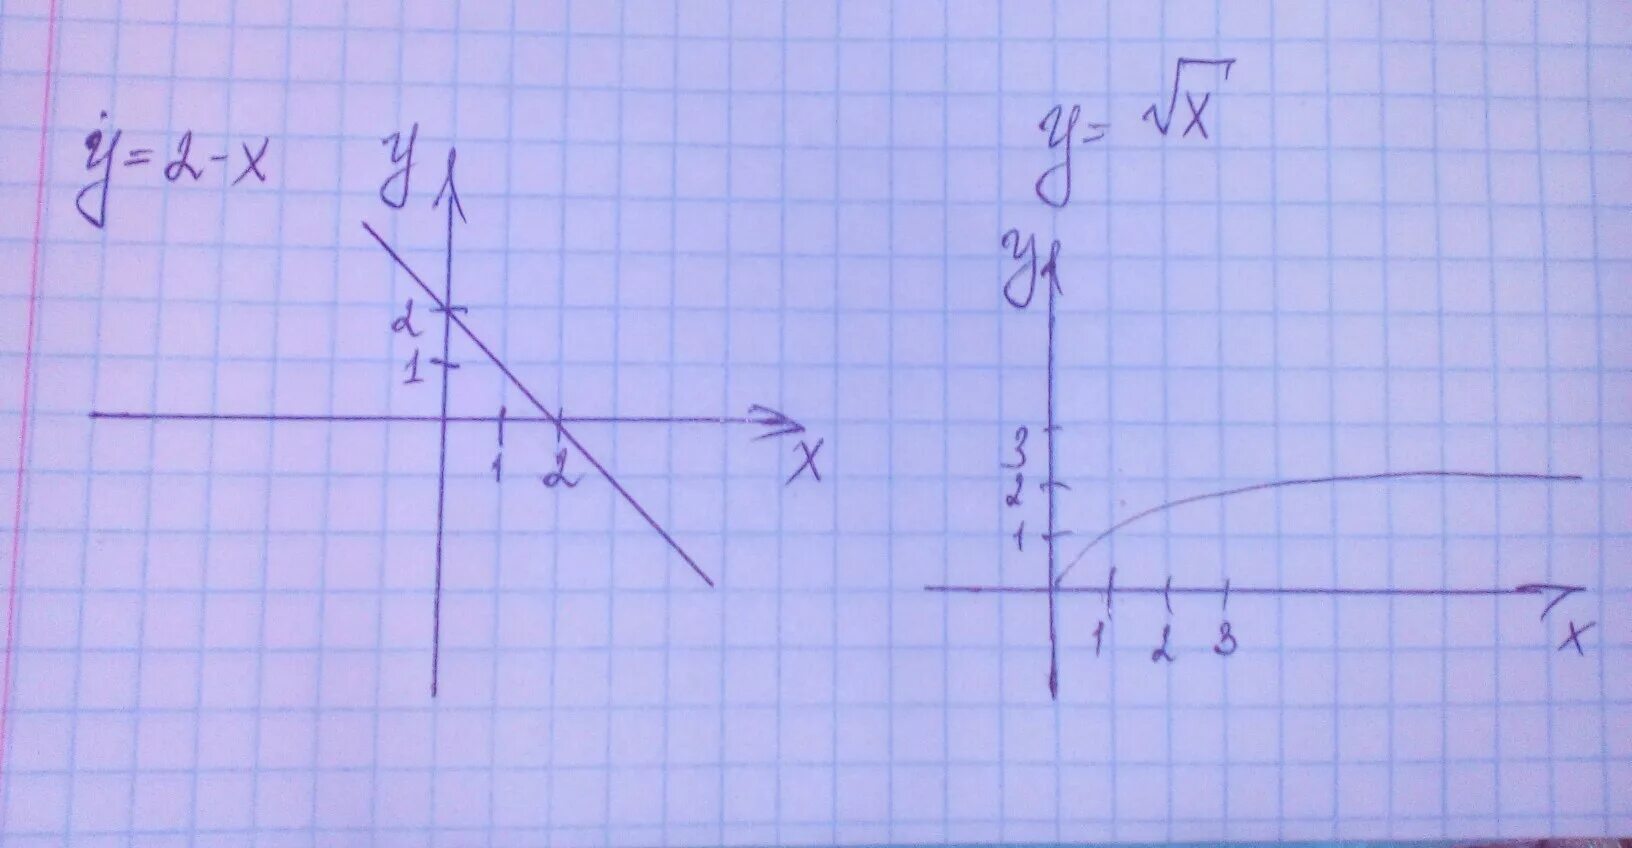 y = 2 - x
y
2
1
1 2
x
y = √x
y
3
2
1
1 2 3
x